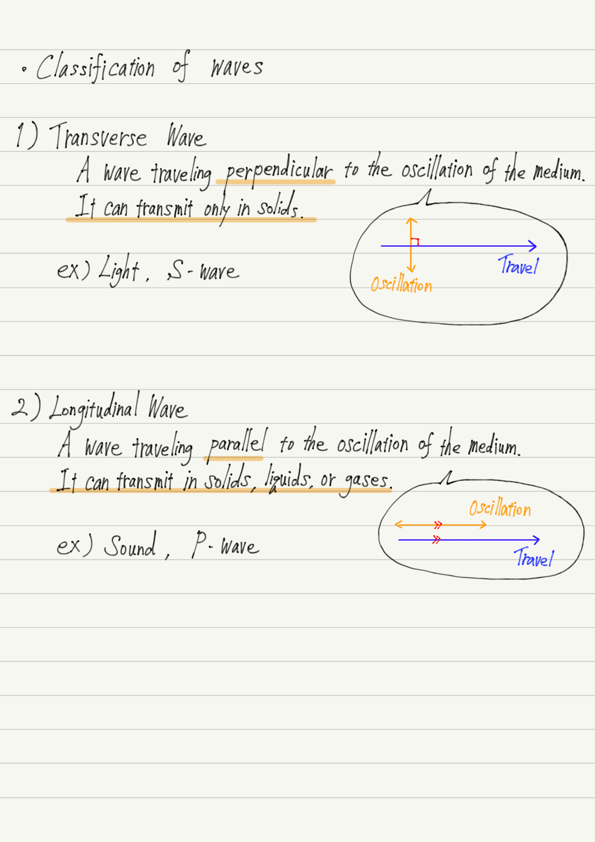 ・Classification of waves
1) Transverse Wave
A wave traveling perpendicular to the oscillation of the medium.
It can transmit only in solids.
ex) Light, S-wave
Travel
Oscillation
2) Longitudinal Wave
A wave traveling parallel to the oscillation of the medium.
It can transmit in solids, liquids, or gases.
Oscillation
ex) Sound, P-wave
Travel